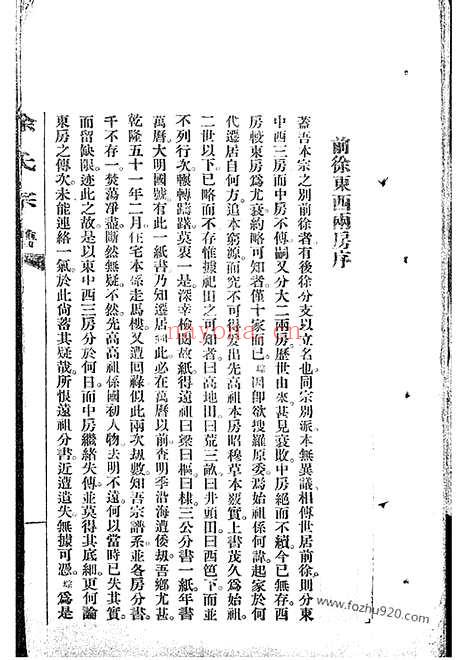 前徐東西兩房序
蓋吾本宗之別前徐者有後徐分支以立名也同宗別派本無異議相傳世居前徐則分東
中西三房而中房不傳嗣又分大二兩房歷世由來甚見衰敗中房絕而不續今已無存西
房較東房爲尤衰約略可知者僅十家而已綜因卽欲搜羅原委爲始祖係何諱起家於何
代遷居自何方追本窮源而究不可得爰出先高祖本房昭穆草本覈實上書茂久爲始祖
二世以下已略而不存惟據祀田之可考者曰高地田曰荒三畝曰井頭田曰西笆下而並
不列行次輾轉躊躇莫衷一是深幸檢點故紙得遠祖曰梁曰樞曰棣三公分書一紙年書
萬曆大明國號有此一紙書乃知遷居到此必在萬曆以前查明季沿海遭倭刼吾鄉尤甚
乾隆五十一年二月住宅本係走馬樓又遭回祿似此兩次刼數知吾宗譜系並各房分書
千不存一焚蕩淨盡斷然無疑不然先高高祖係國初人物去明不遠何以當時已失其實
而留缺限迹此之故是以東中西三房分於何日而中房繼緒失傳並莫得其底細更何論
東房之傳次未能連絡一氣於此尙落其疑哉所恨遠祖分書近遭遺失無據可憑綜爲是
余氏宗譜
nayona.cn
www.fozhu920.com